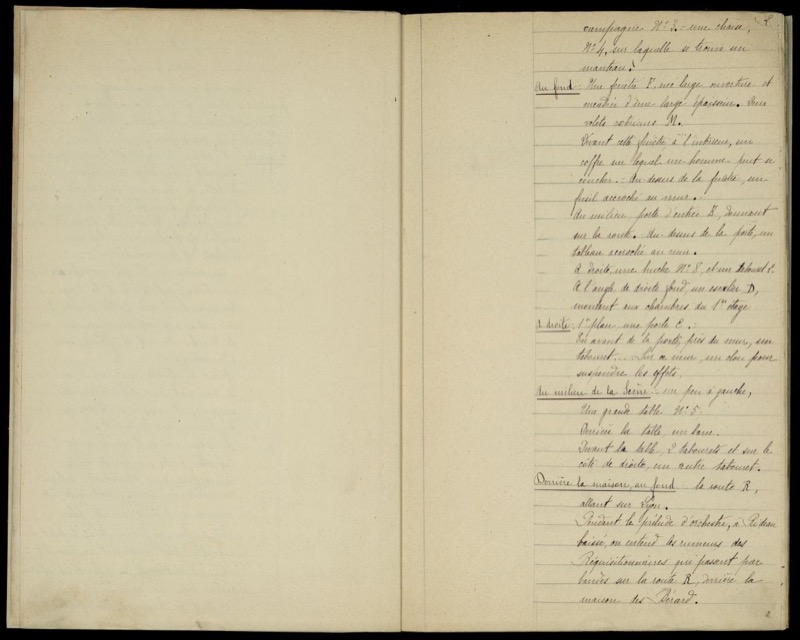 2
campagne Nº 3. - une chaise,
Nº 4, sur laquelle se trouve un
manteau.
Au fond - Une fenêtre F, avec large ouverture et
encadrée d'une large épaisseur. Deux
volets M.
Devant cette fenêtre, à l'intérieur, un
coffre sur lequel un homme peut se
coucher. - Au dessus de la fenêtre, un
fusil accroché au mur. -
Au milieu porte d'entrée B, donnant
sur la route. - Au dessus de la porte, un
tableau accroché au mur.
à droite, une huche Nº 8, et un tabouret 9.
A l'angle de droite fond, un escalier D,
montant aux chambres du 1er étage
à droite. 1er plan une porte C. -
En avant de la porte, près du mur, un
tabouret. - Sur ce mur, un clou pour
suspendre les effets.
Au milieu de la Scène - un peu à gauche,
Une grande table Nº 5.
Derrière la table, un banc.
Devant la table, 2 tabourets et sur le
côté de droite, un autre tabouret.
Derrière la maison, au fond - la route R,
allant sur Lyon.
Pendant le prélude d'orchestre, à Rideau
baissé, on entend les rumeurs des
Réquisitionnaires qui passent par
bandes sur la route R, derrière la
maison des Bérard.
2